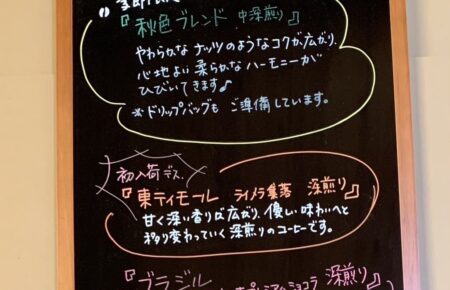 『秋色ブレンド 中深煎り』
やわらかな ナッツのようなコクが広がり、
心地よい 柔らかな ハーモニーが
ひびいてきます♪
※ドリップバッグも ご準備しています。
初入荷デス、
『東ティモール ライメラ集落 深煎り』
甘く深い香りが広がり、優しい味わいへと
移り変わっていく 深煎りのコーヒーです。
『ブラジル
プレミアムショコラ 深煎り』